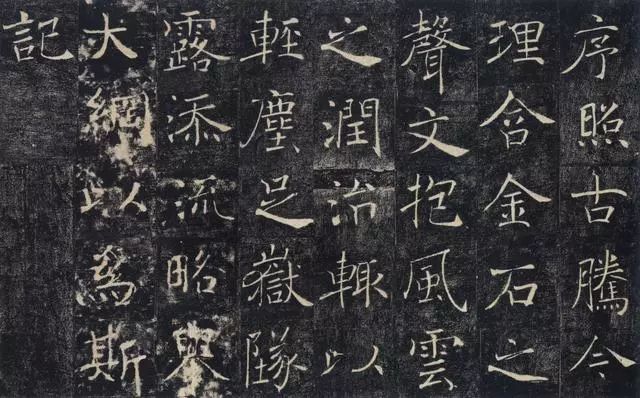 序照古騰今
理含金石之
聲文抱風雲
之潤治輙以
輕塵足嶽隊
露添流略舉
大綱以爲斯
記